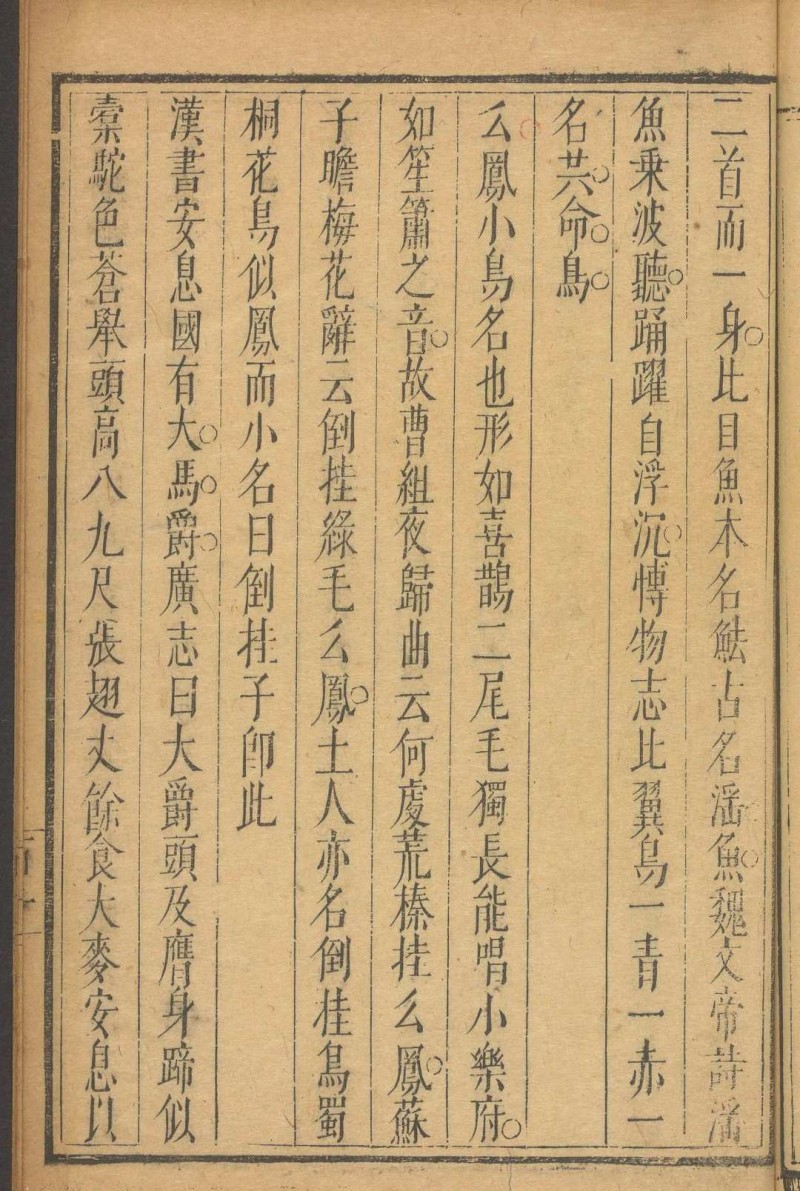 二首而一身比目魚本名魼古名潘魚魏文帝詩潘
魚乗波聽踊躍自浮沉博物志比翼鳥一青一赤一
名共命鳥
么鳳小鳥名也形如喜鵲二尾毛獨長能唱小樂府
如笙簫之音故曹組夜歸曲云何處荒榛挂么鳳蘇
子瞻梅花辭云倒挂綠毛么鳳土人亦名倒挂鳥蜀
桐花鳥似鳳而小名曰倒挂子卽此
漢書安息國有大馬爵廣志曰大爵頭及膺身蹄似
槖駝色蒼舉頭高八九尺張翅丈餘食大麥安息以